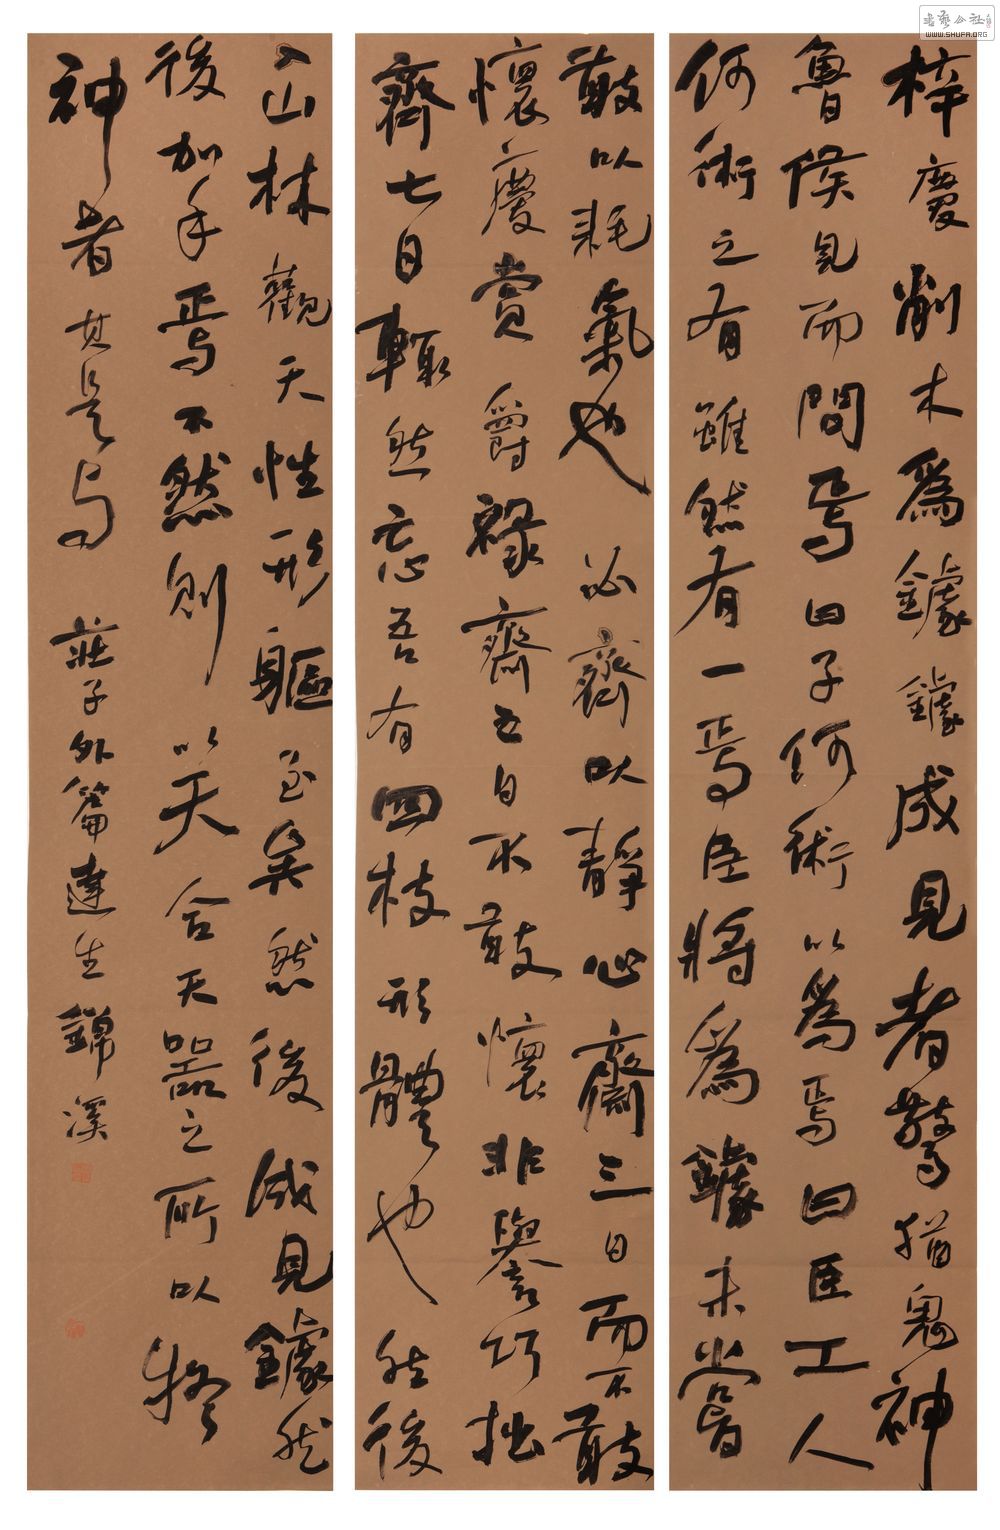 梓慶削木為鐻鐻成見者驚猶鬼神
魯侯見而問焉曰子何術以為焉曰臣工人
何術之有雖然有一焉臣將為鐻未嘗
敢以耗氣也必齊以靜心齋三日而不敢
懷慶賞爵祿齋五日不敢懷非譽巧拙
齊七日輒然忘吾有四枝形體也然後
入山林觀天性形軀至矣然後成見鐻然
後加手焉不然則以天合天器之所以疑
神者其是与
莊子外篇達生錦溪
書藝公社
WWW.SHUFA.ORG